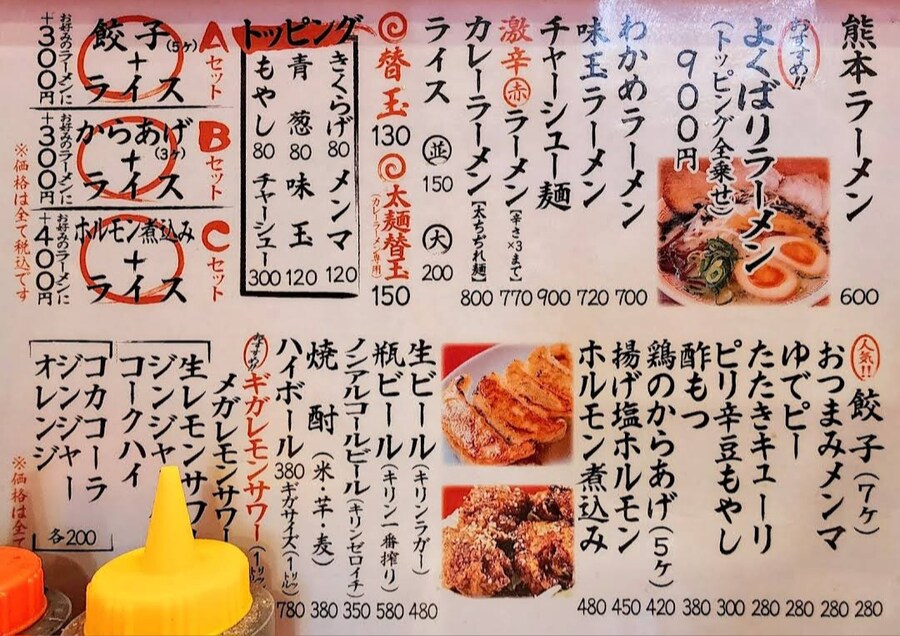 熊本ラーメン 600
おすすめ!!
よくばりラーメン
(トッピング全乗せ)
900円
わかめラーメン 700
味玉ラーメン 720
チャーシュー麺 900
激辛赤ラーメン【辛さ×3まで】 770
カレーラーメン【太ちぢれ麺】 800
ライス 並 150 大 200
替玉 130
太麺替玉 150
(カレーラーメン専用)
トッピング
きくらげ 80 メンマ 120
青葱 80 味玉 120
もやし 80 チャーシュー 300
Aセット
餃子(5ケ)
+
ライス
お好みのラーメンに
+300円
Bセット
からあげ(3ケ)
+
ライス
お好みのラーメンに
+300円
Cセット
ホルモン煮込み
+
ライス
お好みのラーメンに
+400円
※価格は全て税込です
人気!! 餃子(7ケ) 280
おつまみメンマ 280
ゆでピー 280
たたきキューリ 280
ピリ辛豆もやし 300
酢もつ 380
鶏のからあげ(5ケ) 420
揚げ塩ホルモン 450
ホルモン煮込み 480
生ビール(キリンラガー) 480
瓶ビール(キリン一番搾り) 580
ノンアルコールビール(キリンゼロイチ) 350
焼酎(米・芋・麦) 380
ハイボール 380 ギガサイズ(1リットル) 780
おすすめ ギガレモンサワー(1リッ
メガレモンサワー
生レモンサワ
ジンジャ
コークハイ
コカコーラ
ジンジャー
オレンジ
各200
※価格は全て